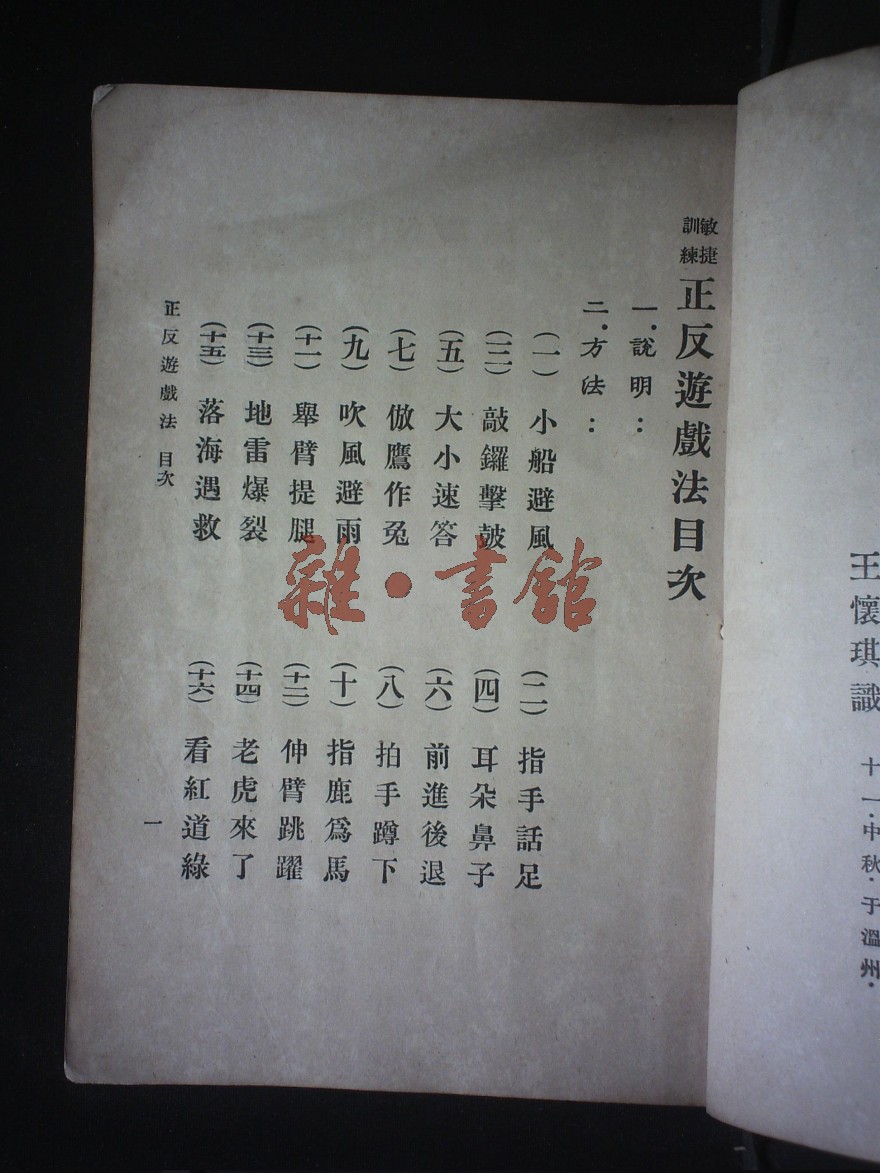 王懷琪識
十一·中秋·于溫州·
敏捷訓練 正反遊戲法目次
一·說明：
二·方法：
（一）小船避風 （二）指手話足
（三）敲鑼擊皷 （四）耳朵鼻子
（五）大小速答 （六）前進後退
（七）倣鷹作兔 （八）拍手蹲下
（九）吹風避雨 （十）指鹿爲馬
（十一）舉臂提腿 （十二）伸臂跳躍
（十三）地雷爆裂 （十四）老虎來了
（十五）落海遇救 （十六）看紅道綠
正反遊戲法 目次 一
雜·書館